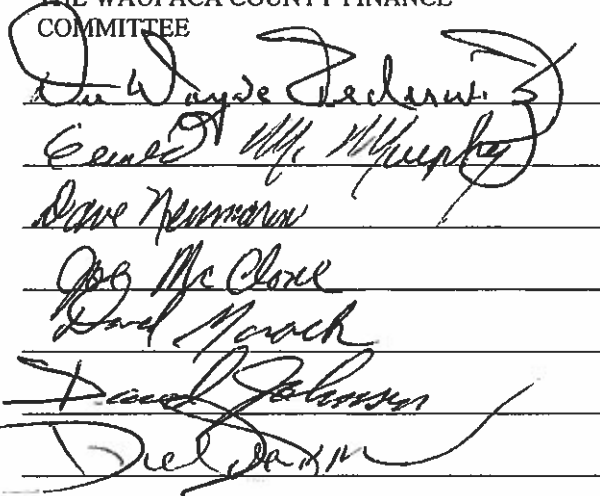 THE WAUPACA COUNTY FINANCE
COMMITTEE
DuWayne Federwitz
Gerald Murphy
Dave Neumann
Joe McClone
David Morack
David Johnson
Dick